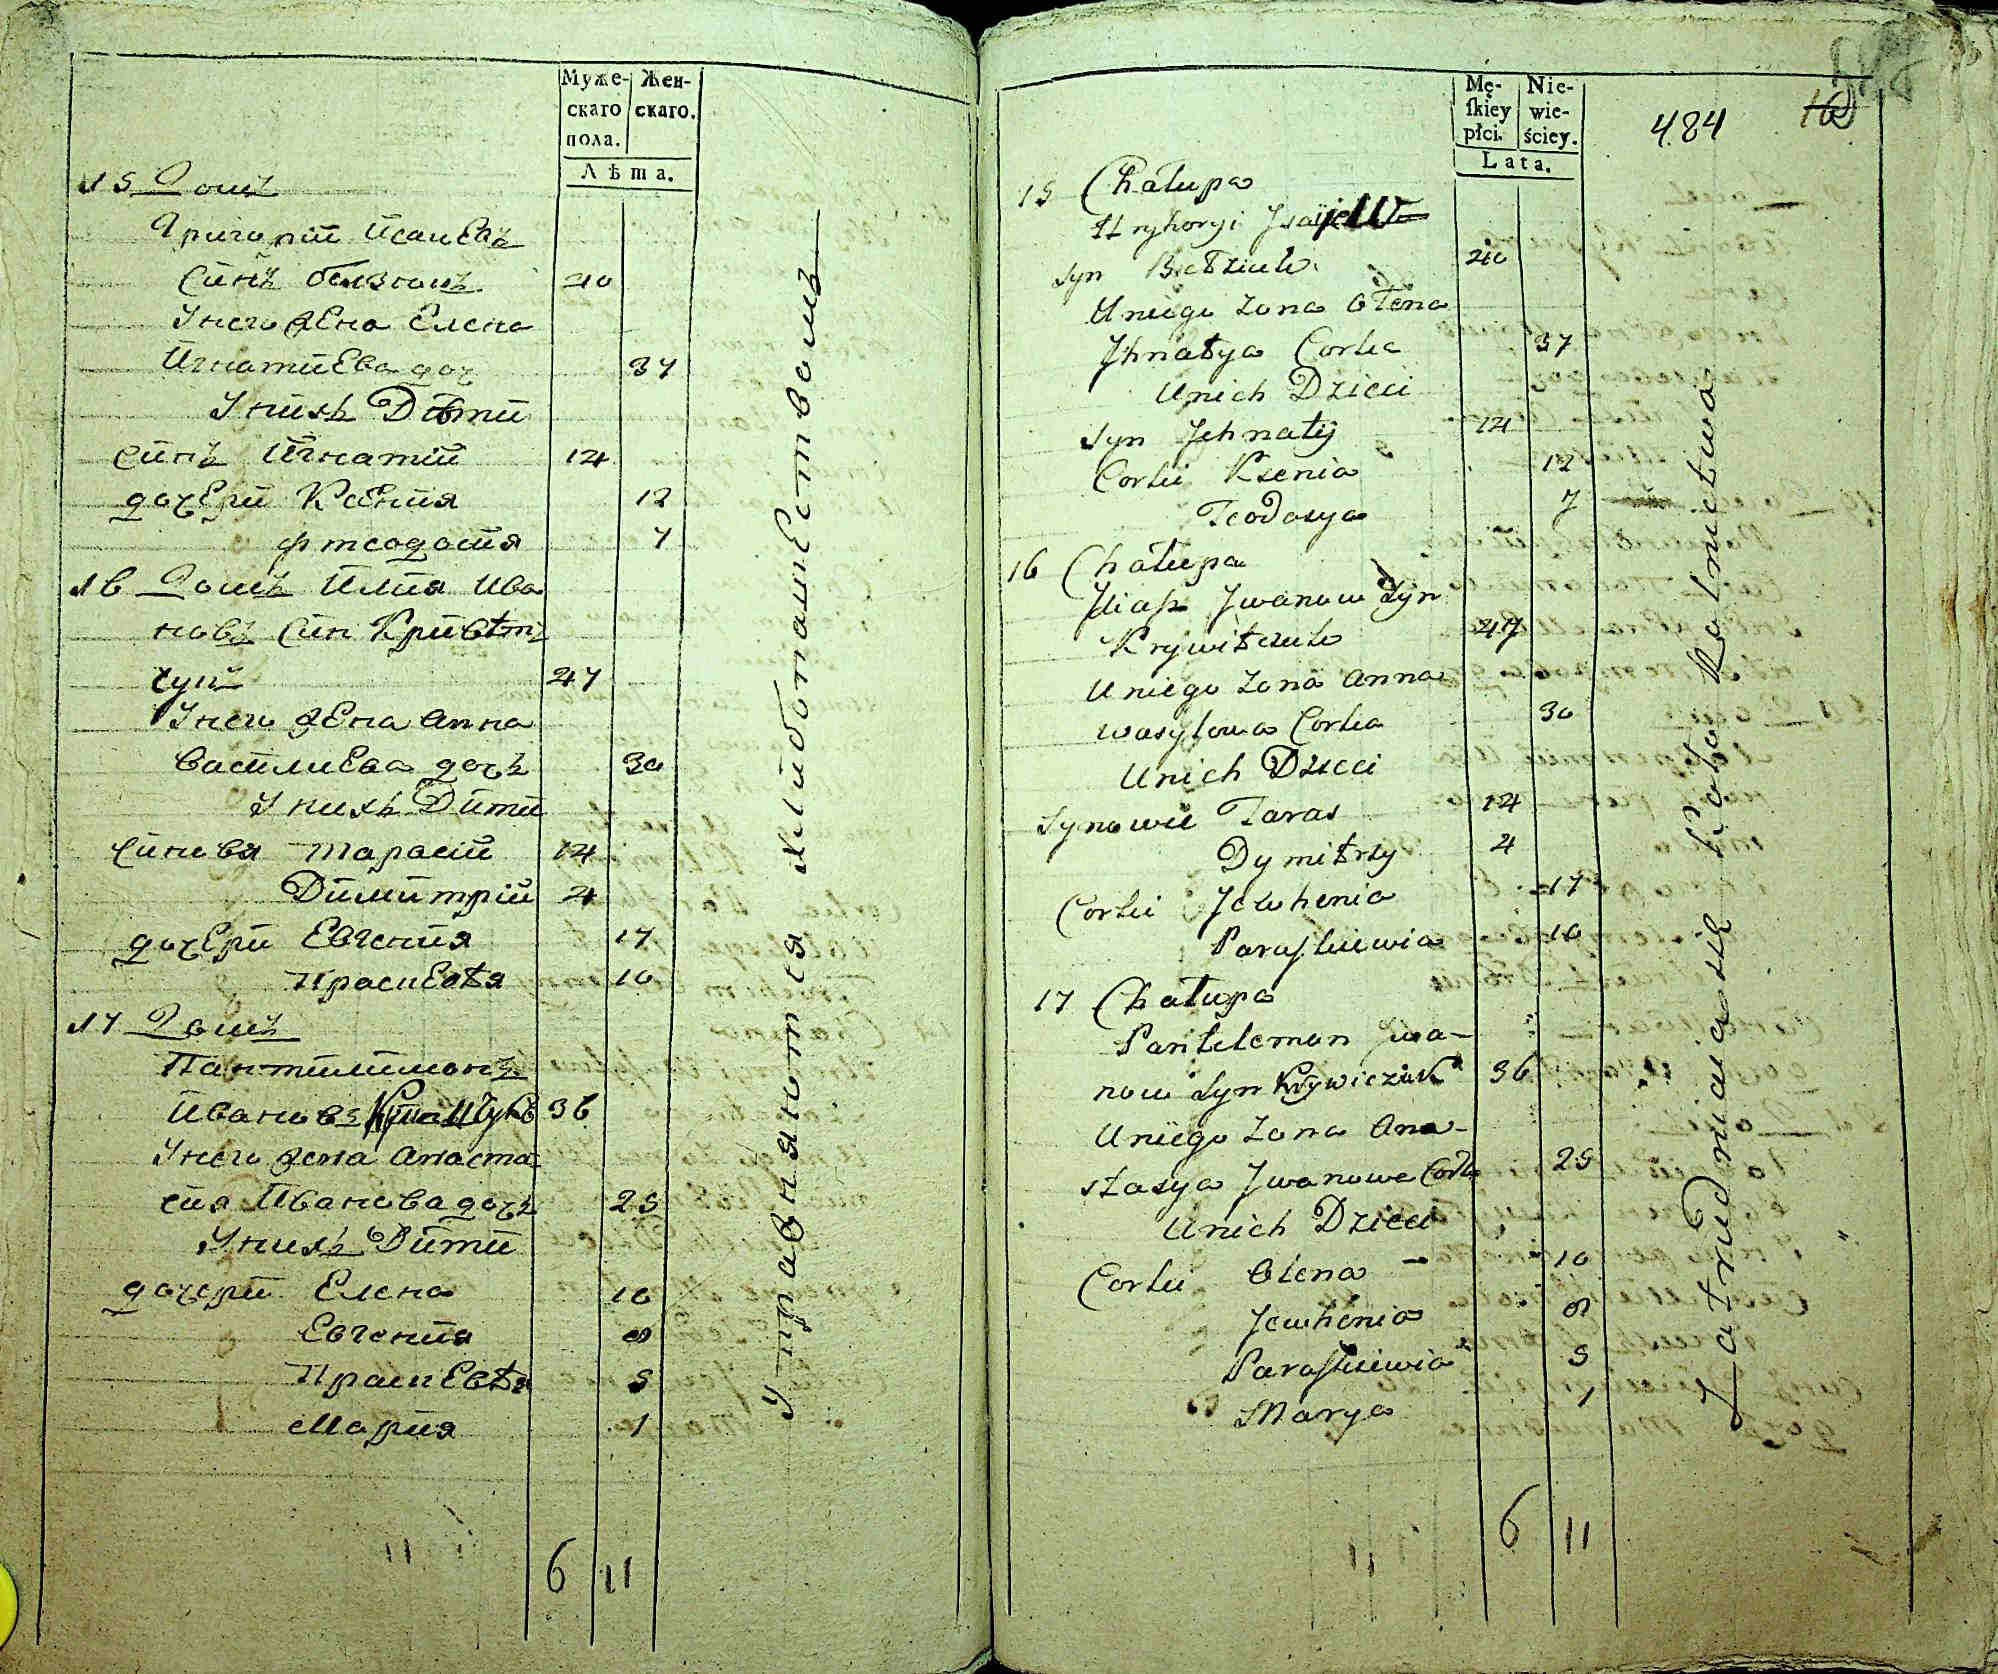 Муже-
скаго
пола.
Жен-
скаго.
Лѣта.
15 Домъ
Григорий Исаиевъ
Синъ 40
У него жена Елена
Игнатиева доч 37
У нихъ Дѣти
Синъ Игнатий 14
дочери Ксения 12
Фтеодосия 7
16 Домъ Илия Ива
новъ Син Кривѣт
чук 47
У него жена Анна
Василиева дочъ 30
У нихъ Дити
Синовя Тарасий 14
Димитрий 4
дочери Евгения 17
Праскевѣя 10
17 Домъ
Пантилимонъ
Ивановъ 36
У него жена Анаста
сия Иванова дочъ 25
У нихъ Дити
дочери Елена 10
Евгения 8
Праскевѣя 5
Мария 1
6 11
Упражняются хлибопашеством
Mę-
ſkiey
płci.
Nie-
wie-
ściey.
Lata.
484
15 Chałupa
Hryhoryi
syn 40
U niego zona Olena
Jhnatya Corka 37
U nich Dzieci
syn Jhnatij 14
Corki Ksenia 12
Teodosya 7
16 Chałupa
Jliasz Jwanow Syn
Krywitczuk 47
U niego zona Anna
Wasylowa Corka 30
U nich Dzieci
Synowie Taras 14
Dymitry 4
Corki Jewhenia 17
Paraskiewia 10
17 Chałupa
Panteleman Jwa-
now Syn Krywiczuk 36
U niego zona Ana-
stasya Jwanowa Corka 25
U nich Dzieci
Corki Olena 10
Jewhenia 8
Paraskiewia 5
Marya 1
6 11
Zatrudniaią się Rolnictwa